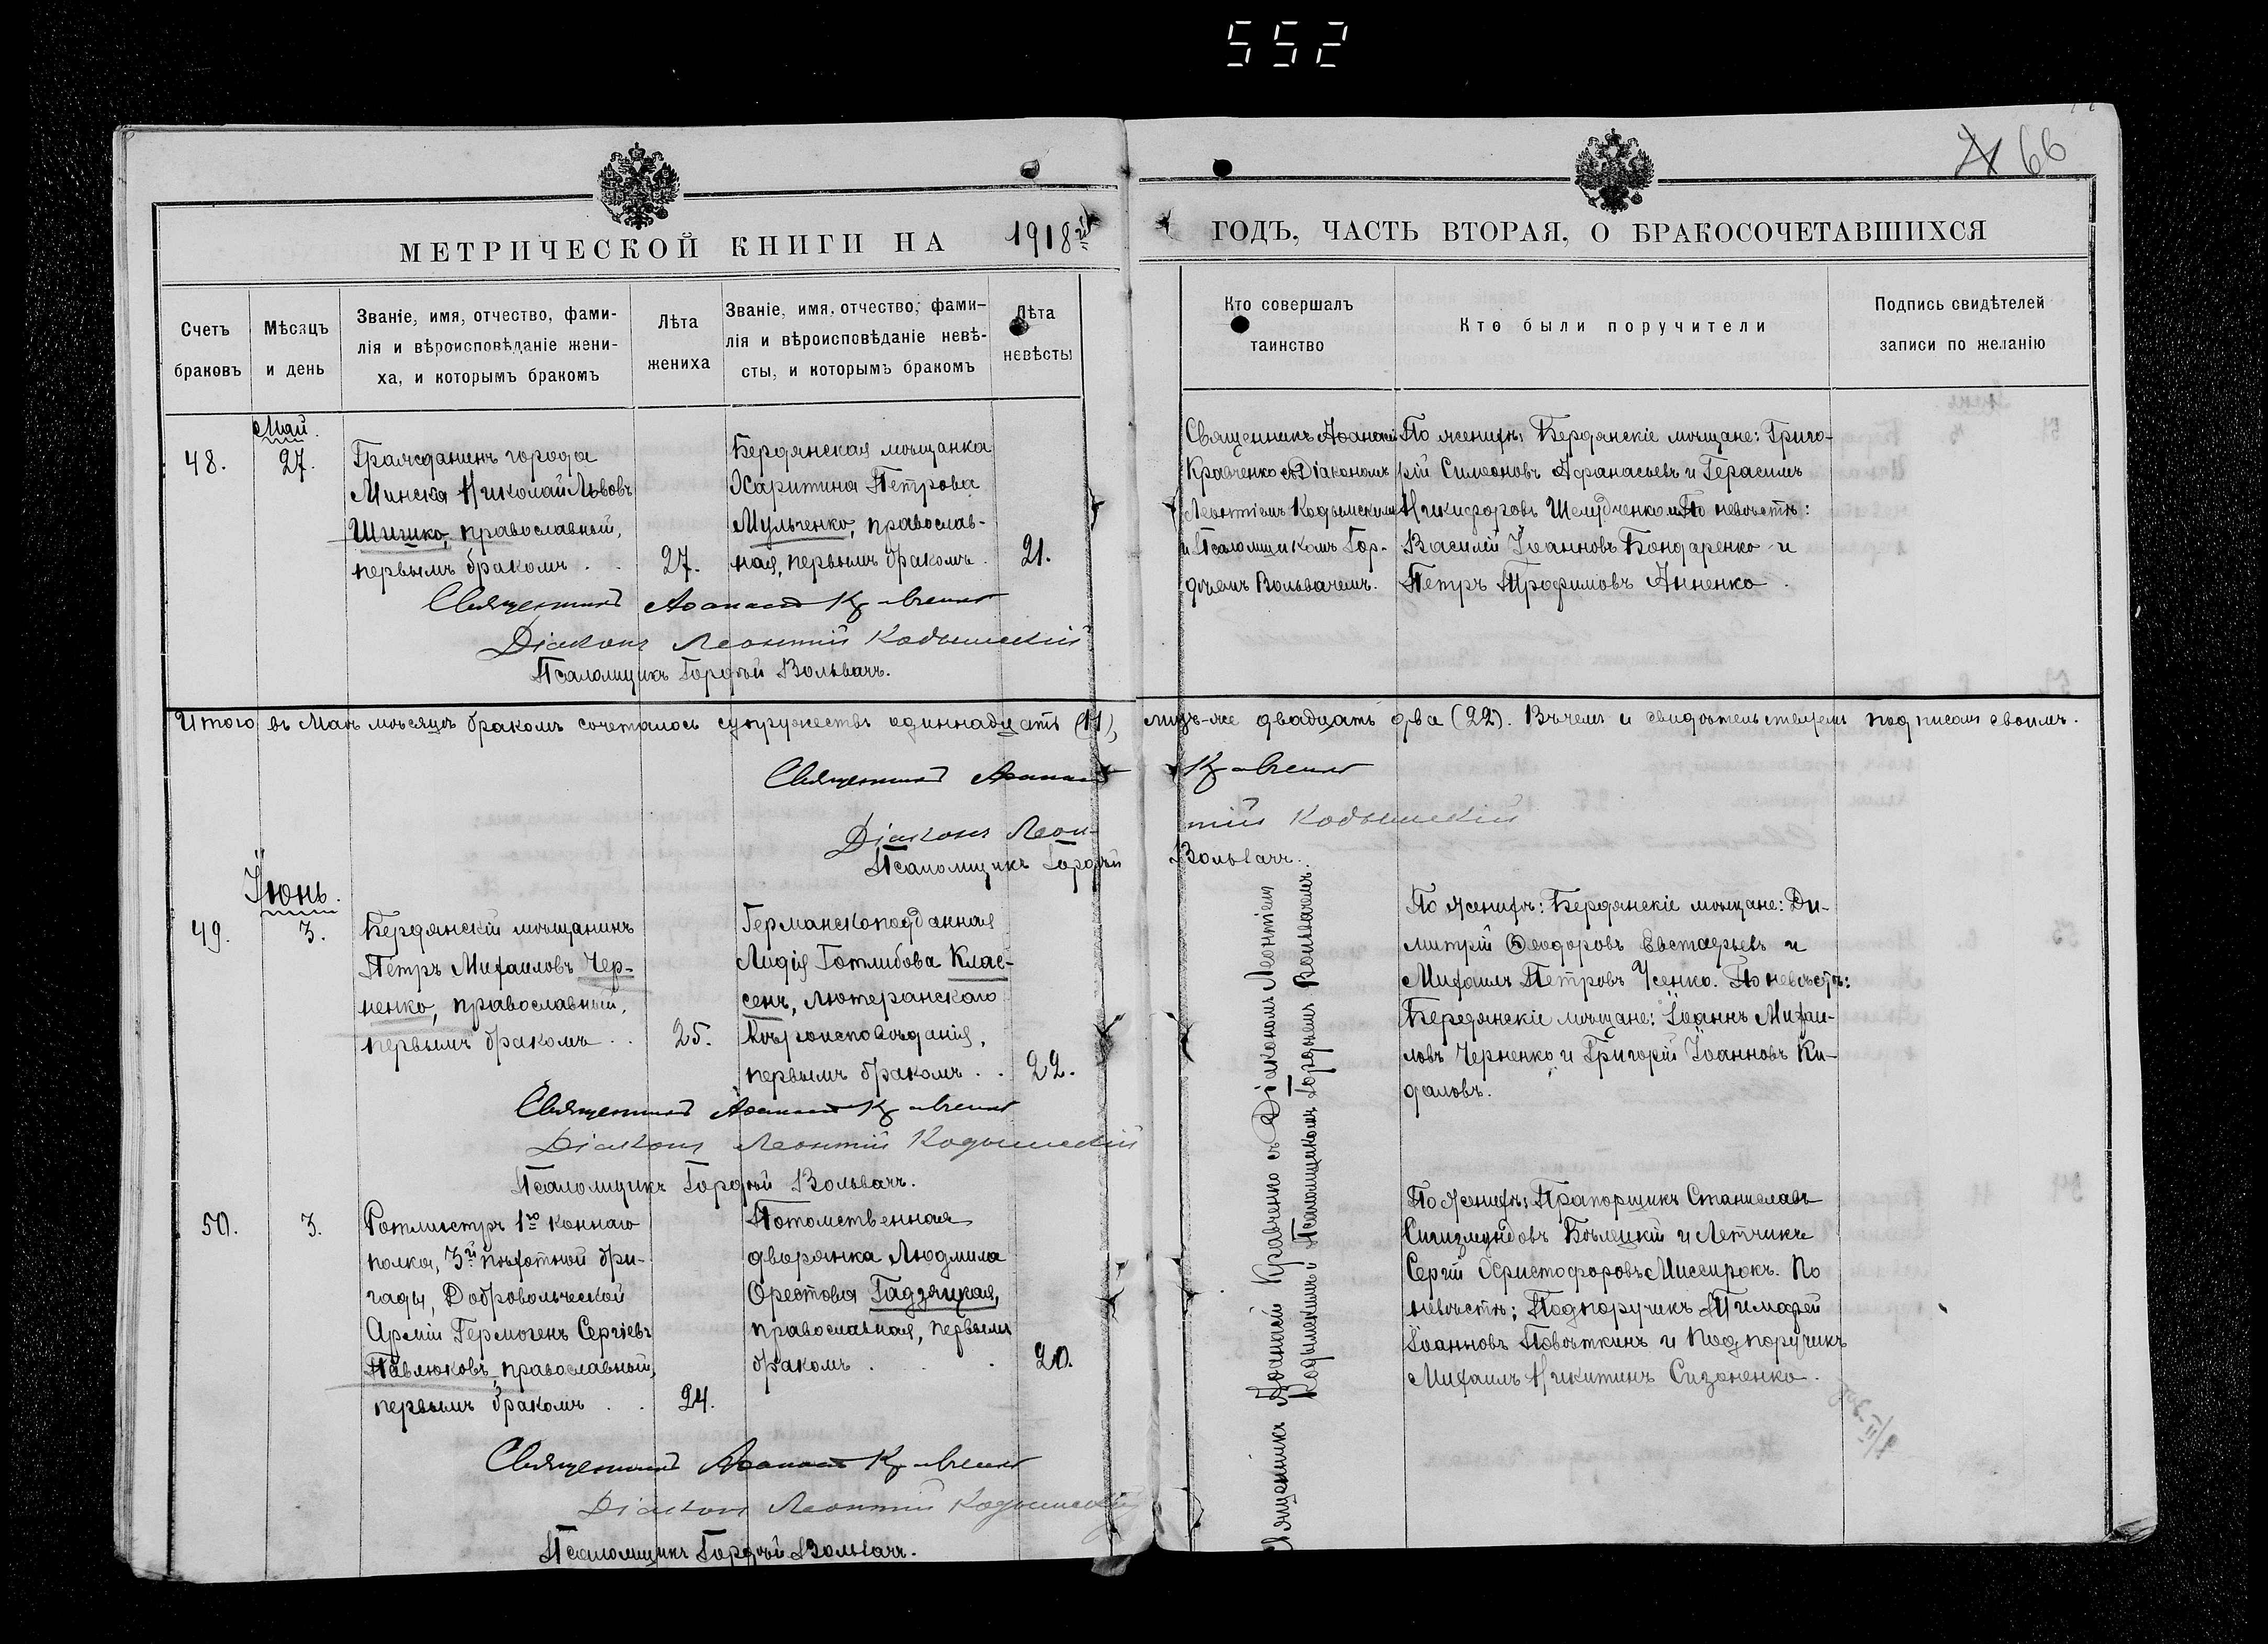 552
66
МЕТРИЧЕСКОЙ КНИГИ НА 1918 й
ГОДЪ, ЧАСТЬ ВТОРАЯ, О БРАКОСОЧЕТАВШИХСЯ
Счетъ
браковъ
Мѣсяцъ
и день
Званіе, имя, отчество, фами-
лія и вѣроисповѣданіе жени-
ха, и которымъ бракомъ
Лѣта
жениха
Званіе, имя, отчество, фами-
лія и вѣроисповѣданіе невѣ-
сты, и которымъ бракомъ
Лѣта
невѣсты
Кто совершалъ
таинство
Кто были поручители
Подпись свидѣтелей
записи по желанію
48.
Май.
27.
Гражданинъ города
Минска Николай Львовъ
Шишко, православный,
первымъ бракомъ . .
27.
Бердянская мѣщанка
Харитина Петрова
Мульченко, православ-
ная, первымъ бракомъ .
21.
Священникъ Аѳанасій
Кравченко съ Діакономъ
Леонтіемъ Кодымскимъ
и Псаломщикомъ Гор-
дѣемъ Вольвачемъ.
По женихѣ: Бердянскіе мѣщане: Григо-
рій Симеоновъ Афанасьевъ и Герасимъ
Никифоровъ Шелудченко. По невѣстѣ:
Василій Іоанновъ Бондаренко и
Петръ Трофимовъ Анненко .
Священникъ Аѳанасій Кравченко
Діаконъ Леонтій Кодымскій
Псаломщикъ Гордѣй Вольвачъ.
Итого въ Маѣ мѣсяцѣ бракомъ сочеталось супружествъ одиннадцать (11), лицъ-же двадцать два (22). Въ чемъ и свидѣтельствуемъ подписомъ своимъ.
Священникъ Аѳанасій Кравченко
Діаконъ Леонтій Кодымскій
Псаломщикъ Гордѣй Вольвачъ.
Іюнь.
49.
3.
Бердянскій мѣщанинъ
Петръ Михаиловъ Чер-
ненко, православный,
первымъ бракомъ . .
25.
Германскоподданная
Лидія Готлибова Клас-
сенъ, лютеранскаго
вѣроисповѣданія,
первымъ бракомъ . .
22.
Священникъ Аѳанасій Кравченко съ Діакономъ Леонтіемъ
Кодымскимъ и Псаломщикомъ Гордѣемъ Вольвачемъ.
По женихѣ: Бердянскіе мѣщане: Ди-
митрій Ѳеодоровъ Евстафьевъ и
Михаилъ Петровъ Усенко. По невѣстѣ:
Бердянскіе мѣщане: Іоаннъ Михаи-
ловъ Черненко и Григорій Іоанновъ Ки-
даловъ.
Священникъ Аѳанасій Кравченко
Діаконъ Леонтій Кодымскій
Псаломщикъ Гордѣй Вольвачъ.
50.
3.
Ротмистръ 1го коннаго
полка, 3й пѣхотной бри-
гады, Добровольческой
Арміи Гермогенъ Сергіевъ
Павлюковъ, православный,
первымъ бракомъ . .
24.
Потомственная
дворянка Людмила
Орестова Гадзяцкая,
православная, первымъ
бракомъ . . .
20.
По женихѣ: Прапорщикъ Станиславъ
Сигизмундовъ Бѣлецкій и Летчикъ
Сергій Христофоровъ Миссирокъ. По
невѣстѣ: Подпоручикъ Тимофей
Іоанновъ Повѣткинъ и Подпоручикъ
Михаилъ Никитинъ Сизоненко.
Священникъ Аѳанасій Кравченко
Діаконъ Леонтій Кодымскій
Псаломщикъ Гордѣй Вольвачъ.